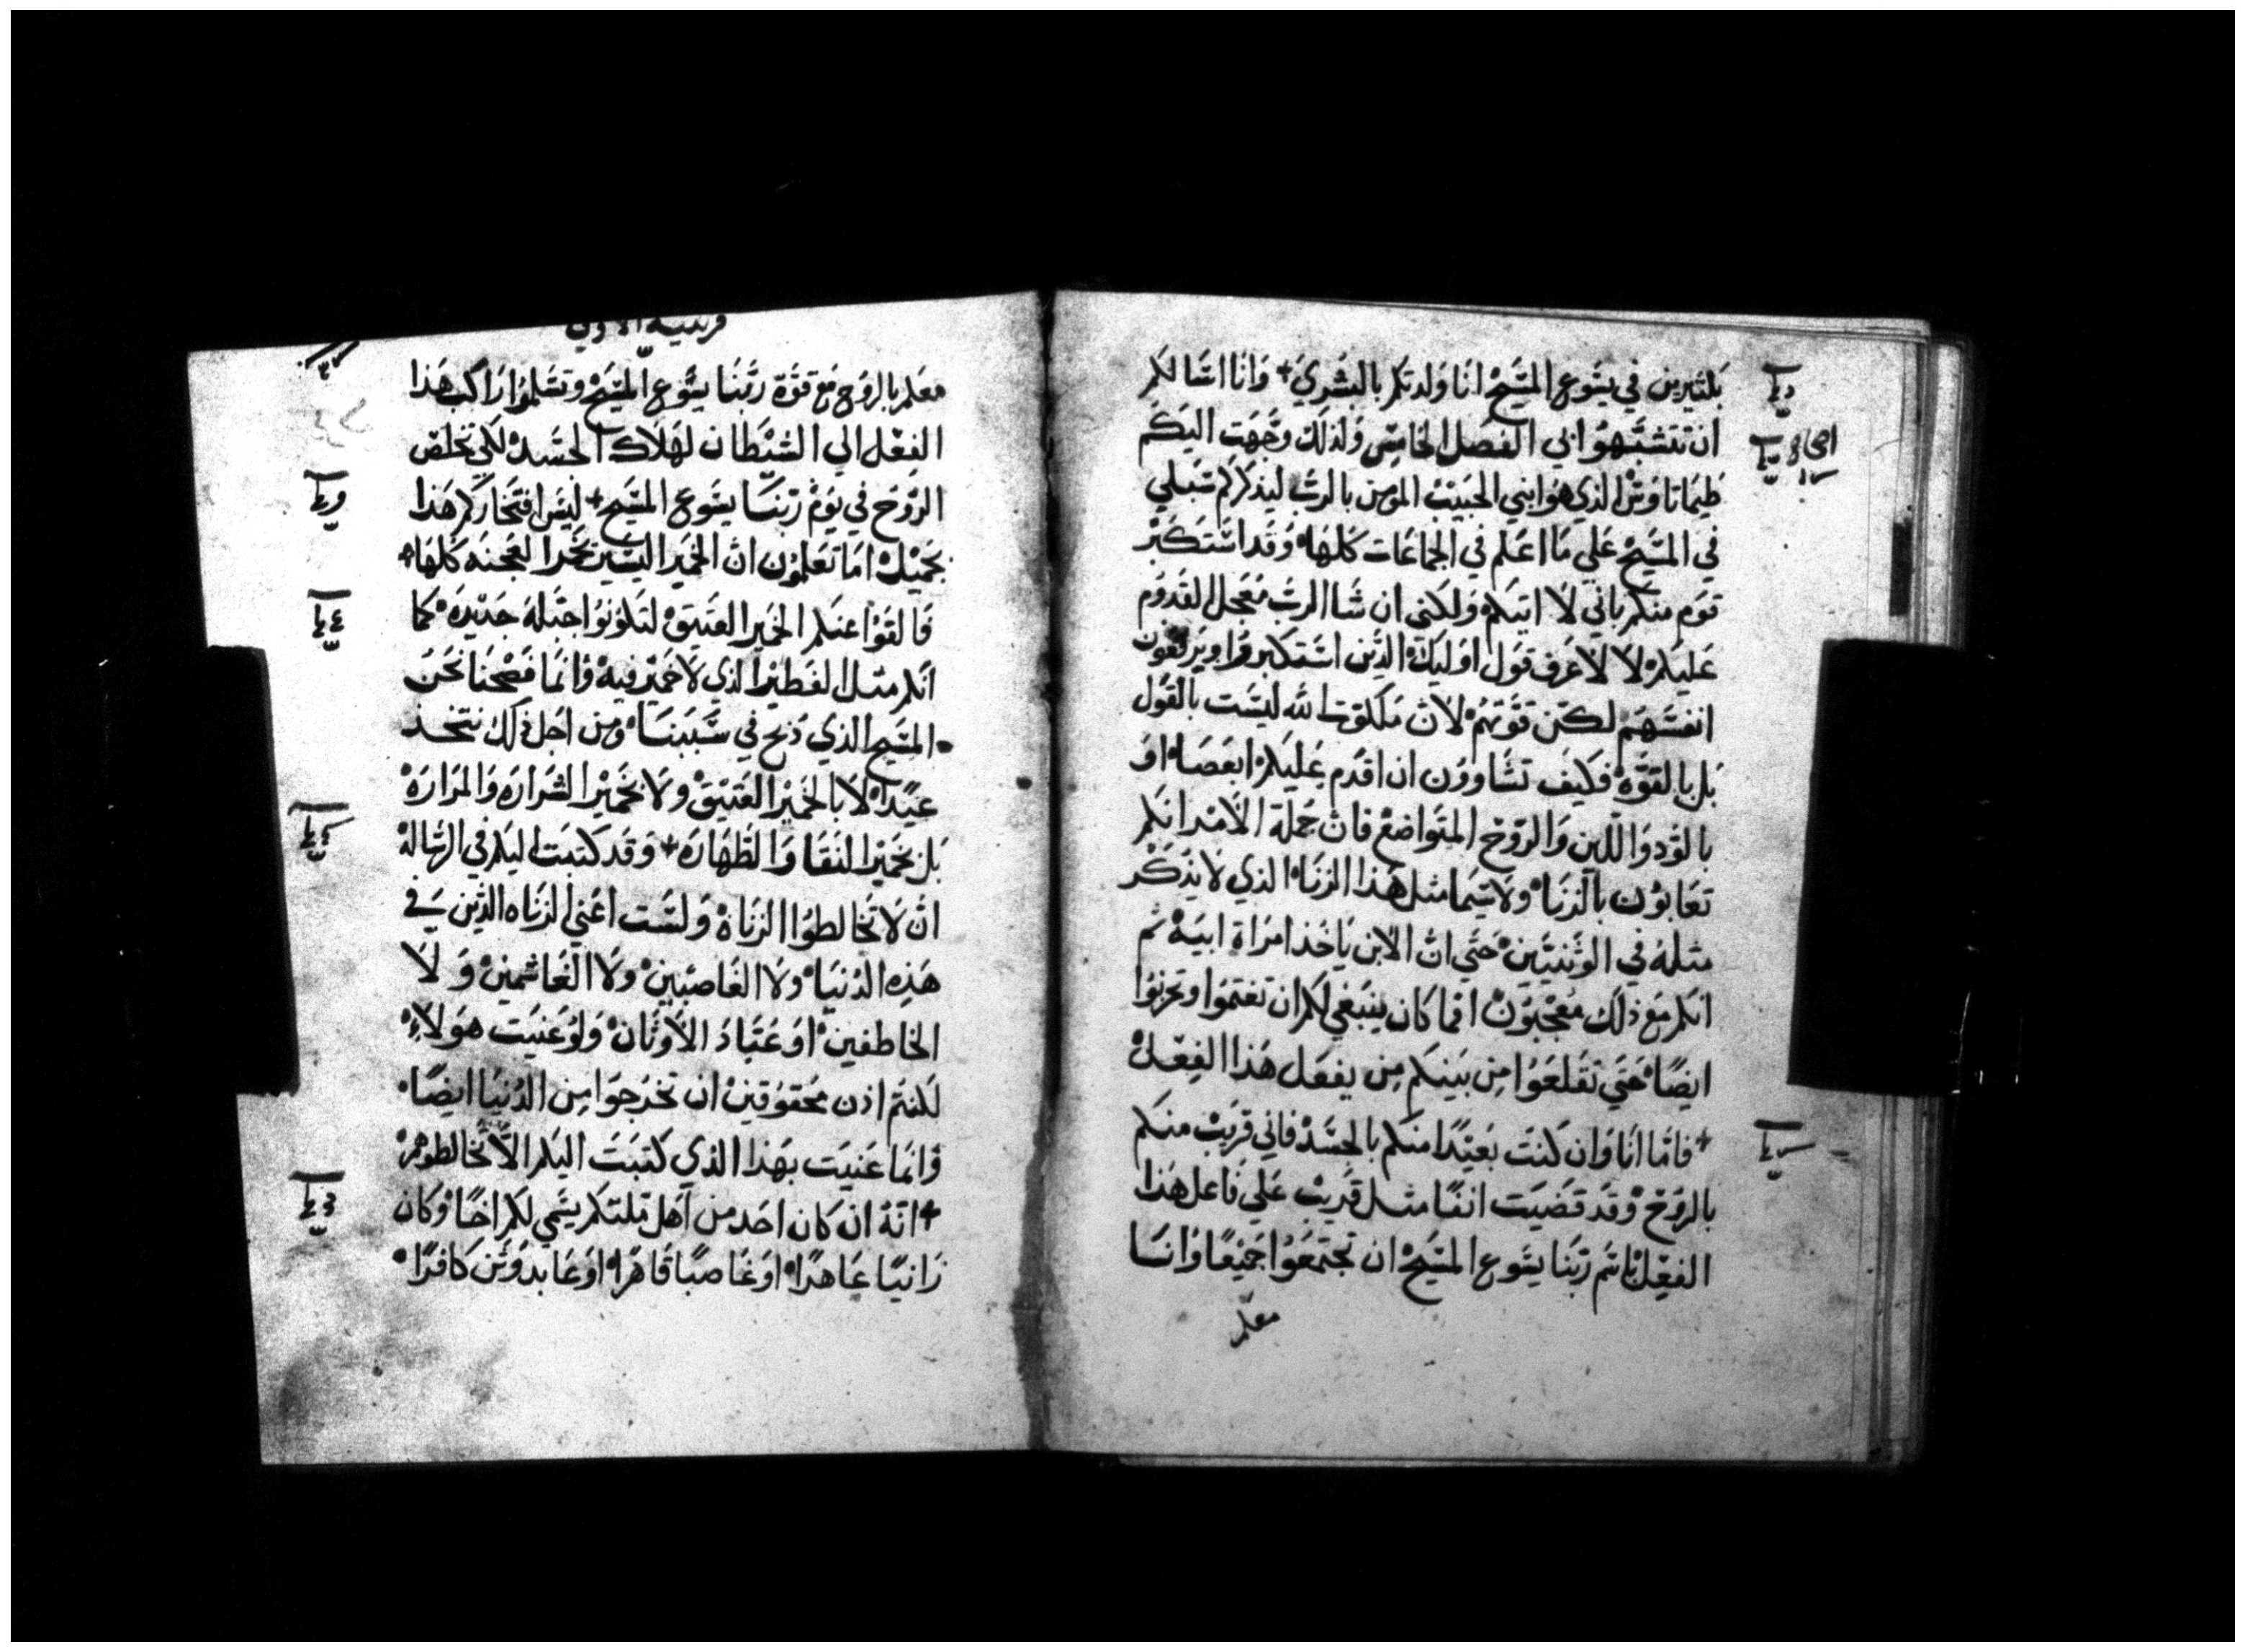 بكثيرين في يسوع المسيح انا ولدتكم بالبشري + وانا اسالكم
ان تتشبهوا بي الفصل الخامس ولذلك وجهت اليكم
طيماتاوس الذي هو ابني الحبيب المومن بالرب ليذكركم سبلي
في المسيح علي ما اعلم في الجماعات كلها وقد استكبر
قوم منكم باني لا اتيكم ولكني ان شا الرب معجل القدوم
عليكم لا لاعرف قول اوليك الذين استكبروا ويرفعون
انفسهم لكن قوتهم لان ملكوت الله ليست بالقول
بل بالقوة فكيف تشاوون ان اقدم عليكم ابعصا او
بالود واللين والروح المتواضع فان جملة الامر انكم
تعابون بالزنا ولا سيما مثل هذا الزنا الذي لا يذكر
مثله في الوثنيين حتي ان الابن ياخذ امراة ابيه ثم
انكم مع ذلك معجبون افما كان ينبغي لكم ان تغتموا وتحزنوا
ايضا حتي تقلعوا من بينكم من يفعل هذا الفعل
+ فاما انا وان كنت بعيدا منكم بالجسد فاني قريب منكم
بالروح وقد قضيت انفا مثل قريب علي فاعل هذا
الفعل باسم ربنا يسوع المسيح ان تجتمعوا جميعا وانا
معكم
قرنتيه الاولي
معكم بالروح مع قوة ربنا يسوع المسيح وتسلموا راكب هذا
الفعل الي الشيطان لهلاك الجسد لكي تخلص
الروح في يوم ربنا يسوع المسيح + ليس افتخاركم هذا
بجميل اما تعلمون ان الخمير اليسير تخمر العجنه كلها +
فالقوا عنكم الخمير العتيق لتكونوا جبلة جديده كما
انكم مثل الفطير الذي لا خمير فيه وانما فصحنا نحن
المسيح الذي ذبح في سببنا ومن اجل ذلك نتخذ
عيدا لا بالخمير العتيق ولا بخمير الشراره والمراره
بل بخمير النقا والطهاره + وقد كتبت اليكم في الرساله
ان لا تخالطوا الزناة ولست اعني الزناه الذين في
هذه الدنيا ولا الغاصبين ولا الغاشمين ولا
الخاطفين او عباد الاوثان ولو عنيت هولاء
لكنتم اذن محقوقين ان تخرجوا من الدنيا ايضا
وانما عنيت بهذا الذي كتبت اليكم الا تخالطوهم
+ انه ان كان احد من اهل ملتكم يسمي لكم اخا وكان
زانيا عاهرا او غاصبا قاهرا او عابد وثن كافرا